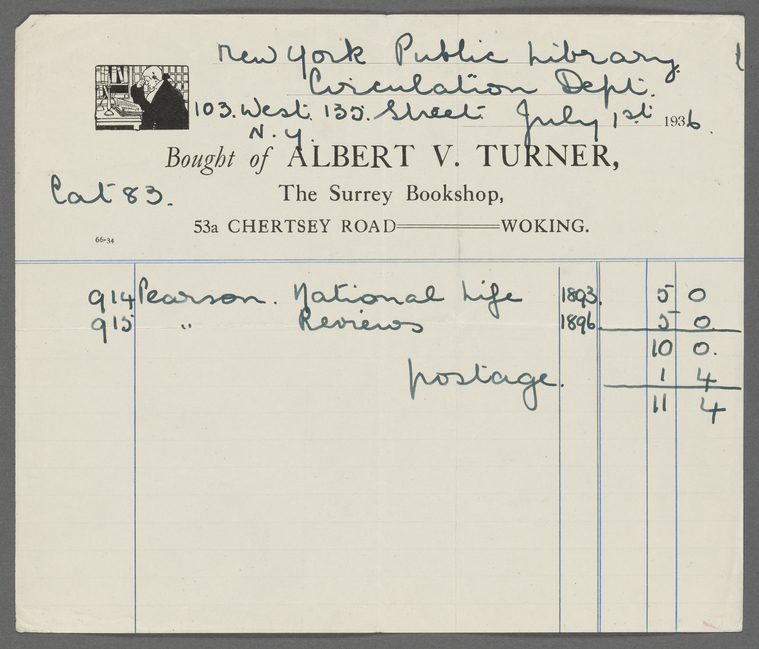 New York Public Library.
Circulation Dept.
103. West. 135. Street. July 1st. 1936.
N. Y.
Bought of ALBERT V. TURNER,
Cat 83.
The Surrey Bookshop,
53a CHERTSEY ROAD WOKING.
66-34
914 Pearson. National Life 1893. 5 0
915 " Reviews 1896. 5 0
10 0.
postage. 1 4
11 4